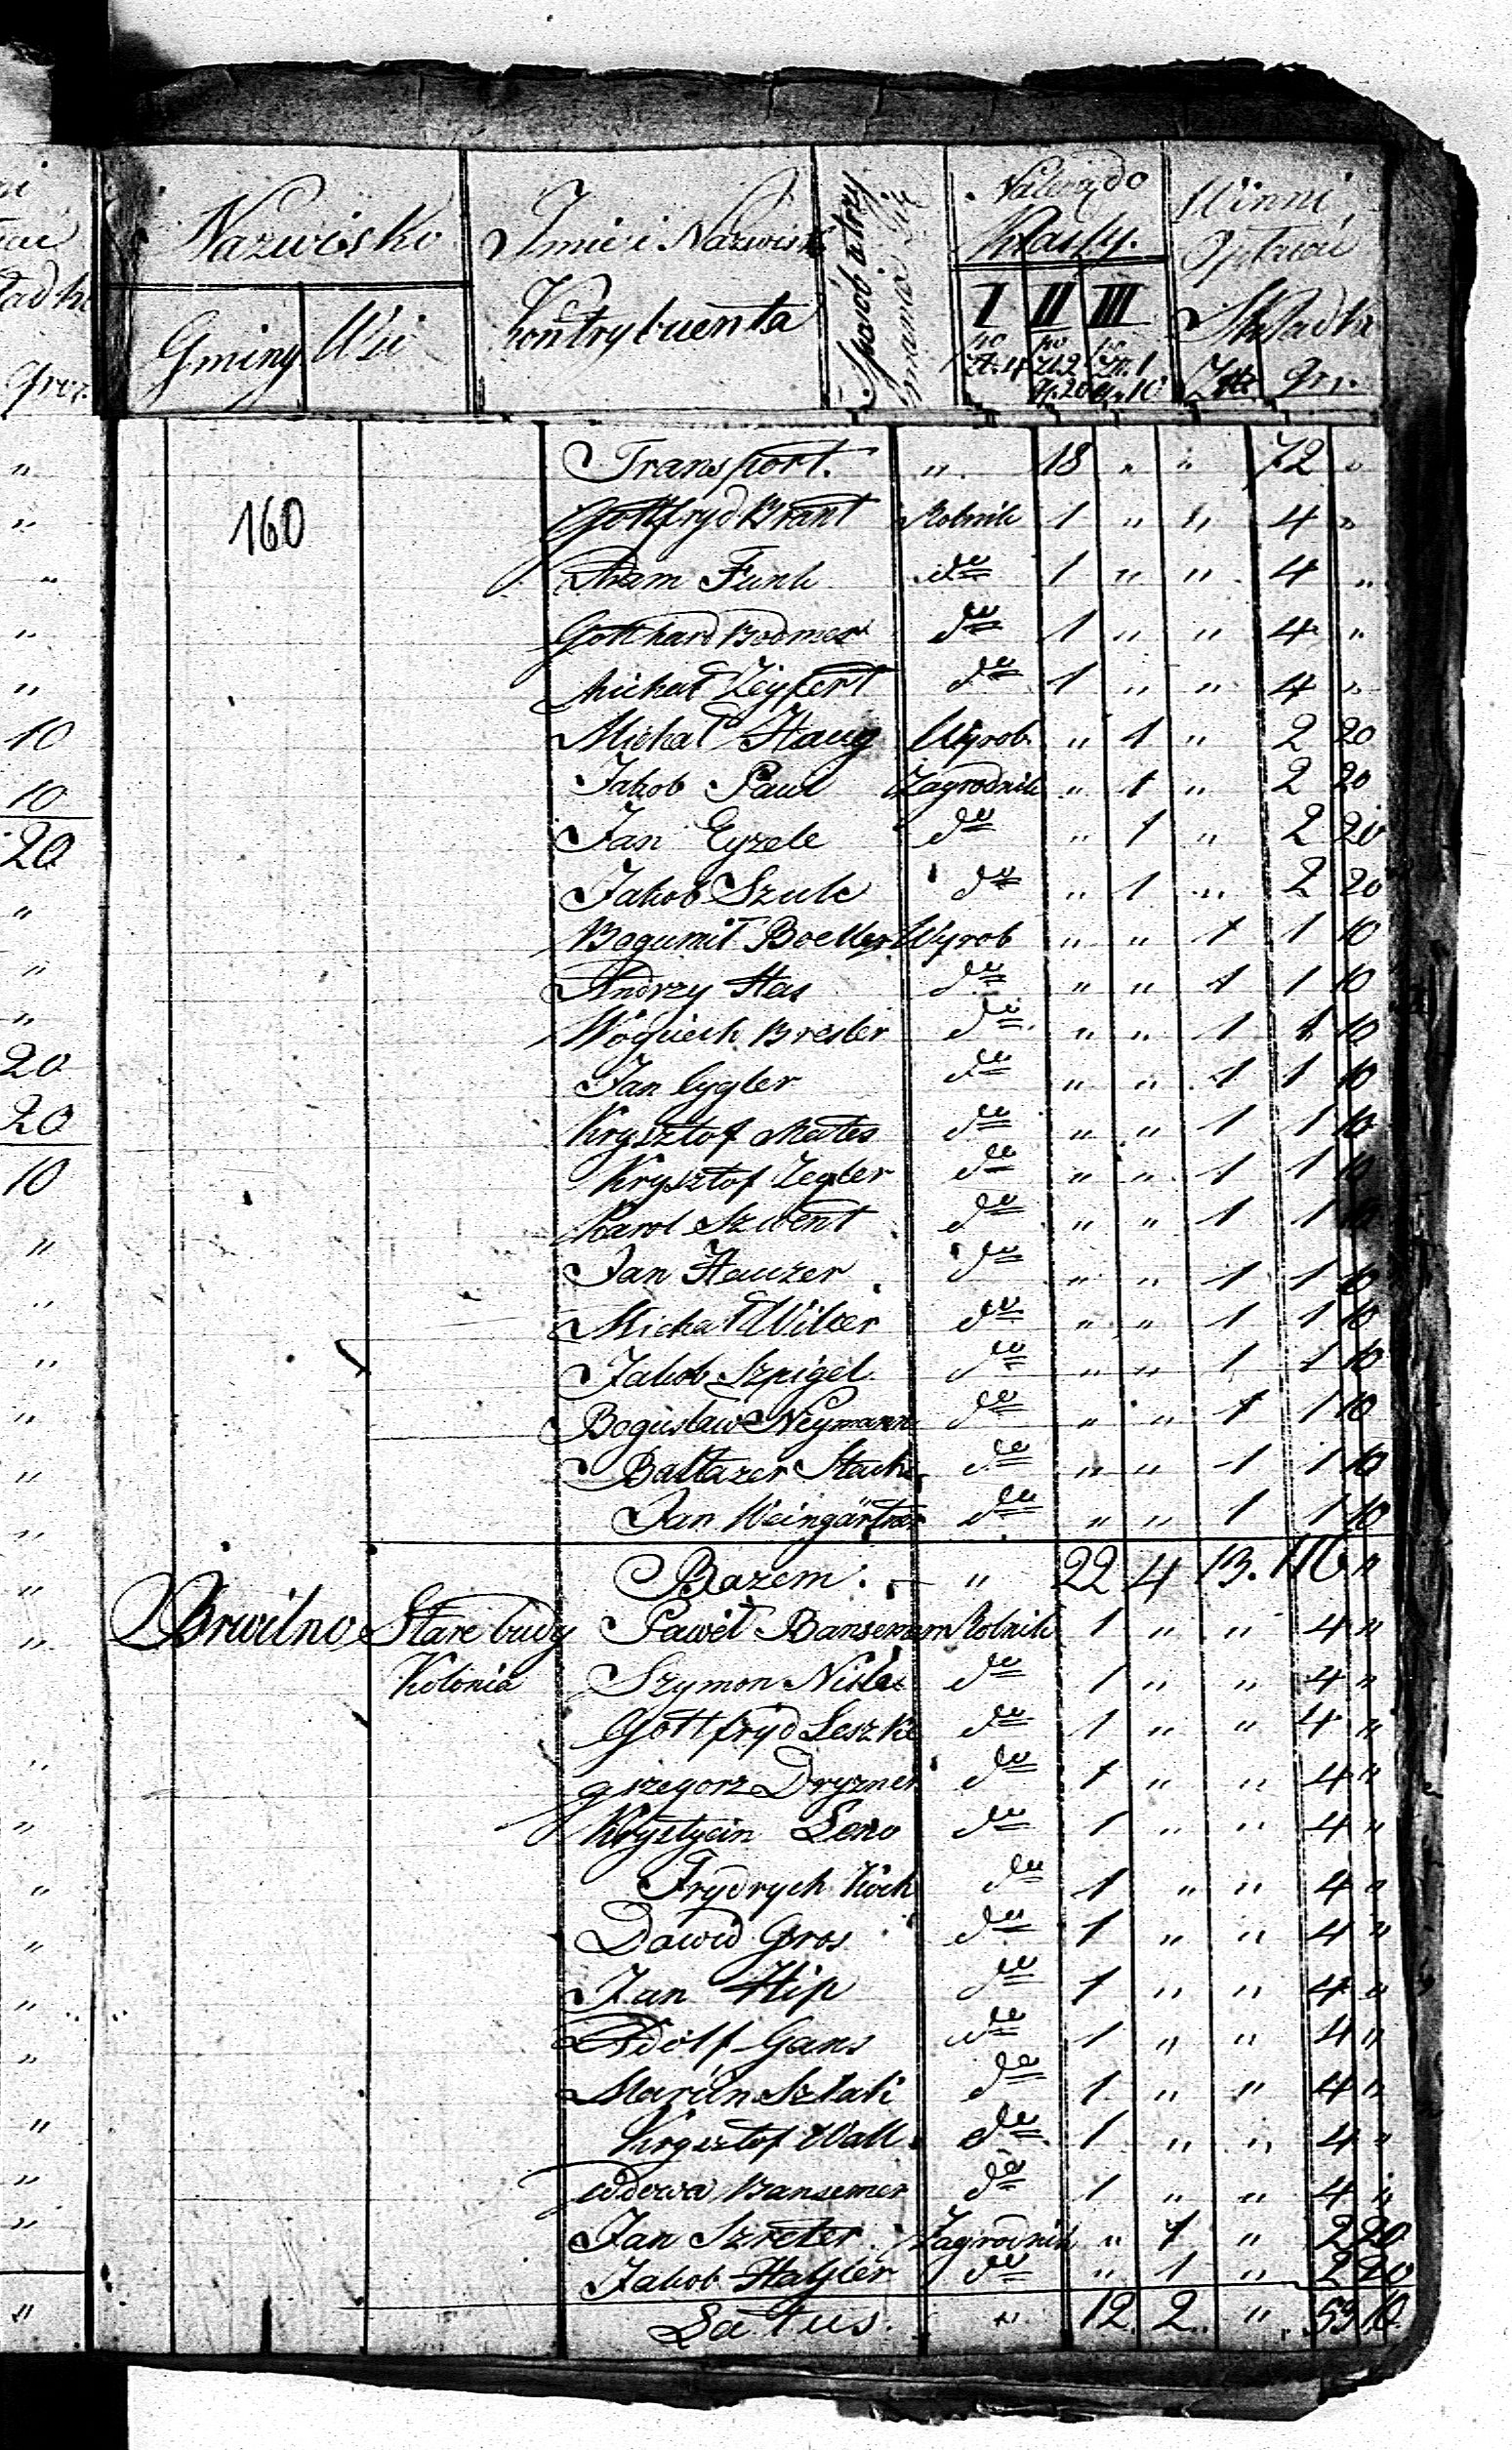 Nazwisko
Gminy Wsi
Imie i Nazwisko
Kontrybuenta
Sposób utrzy
mania się
Należą do
Klassy.
I II III
po Zł. 4 po Zł. 2 gr. 20 po Zł. 1 gr. 10
Winni
Opłacać
Składka
Złt. gr.
160
Transport. " 18 " " 72 "
Gottfryd Brant Rolnik 1 " " 4 "
Adam Funk do 1 " " 4 "
Gotthard Bodmer do 1 " " 4 "
Michał Zeyfert do 1 " " 4 "
Michał Haug Wyrob. " 1 " 2 20
Jakob Paul Zagrodnik " 1 " 2 20
Jan Eyzele do " 1 " 2 20
Jakob Szulc do " 1 " 2 20
Bogumił Boetler Wyrob " " 1 1 10
Andrzy Has do " " 1 1 10
Woyciech Bresler do " " 1 1 10
Jan Cygler do " " 1 1 10
Krysztof Mates do " " 1 1 10
Krysztof Zegler do " " 1 1 10
Karol Szwent do " " 1 1 10
Jan Hauzer do " " 1 1 10
Michał Wilker do " " 1 1 10
Jakob Szpigel do " " 1 1 10
Bogusław Neymann do " " 1 1 10
Baltazer do " " 1 1 10
Jan Weingärtner do " " 1 1 10
Razem. " 22 4 13. 116 "
Brwilno Stare budy Paweł Bansemer Rolnik 1 " " 4 "
Kolonia Szymon do 1 " " 4 "
Gottfryd Leszke do 1 " " 4 "
grzegorz Dryzner do 1 " " 4 "
Krystyan do 1 " " 4 "
Frydrych Koch do 1 " " 4 "
Dawid Gros do 1 " " 4 "
Jan Hip do 1 " " 4 "
Adolf Gans do 1 " " 4 "
do 1 " " 4 "
Krysztof Wall do 1 " " 4 "
wdowa Bansemer do 1 " " 4 "
Jan Szreter Zagrodnik " 1 " 2 20
Jakob do " 1 " 2 20
Latus. " 12. 2. " 53 10.